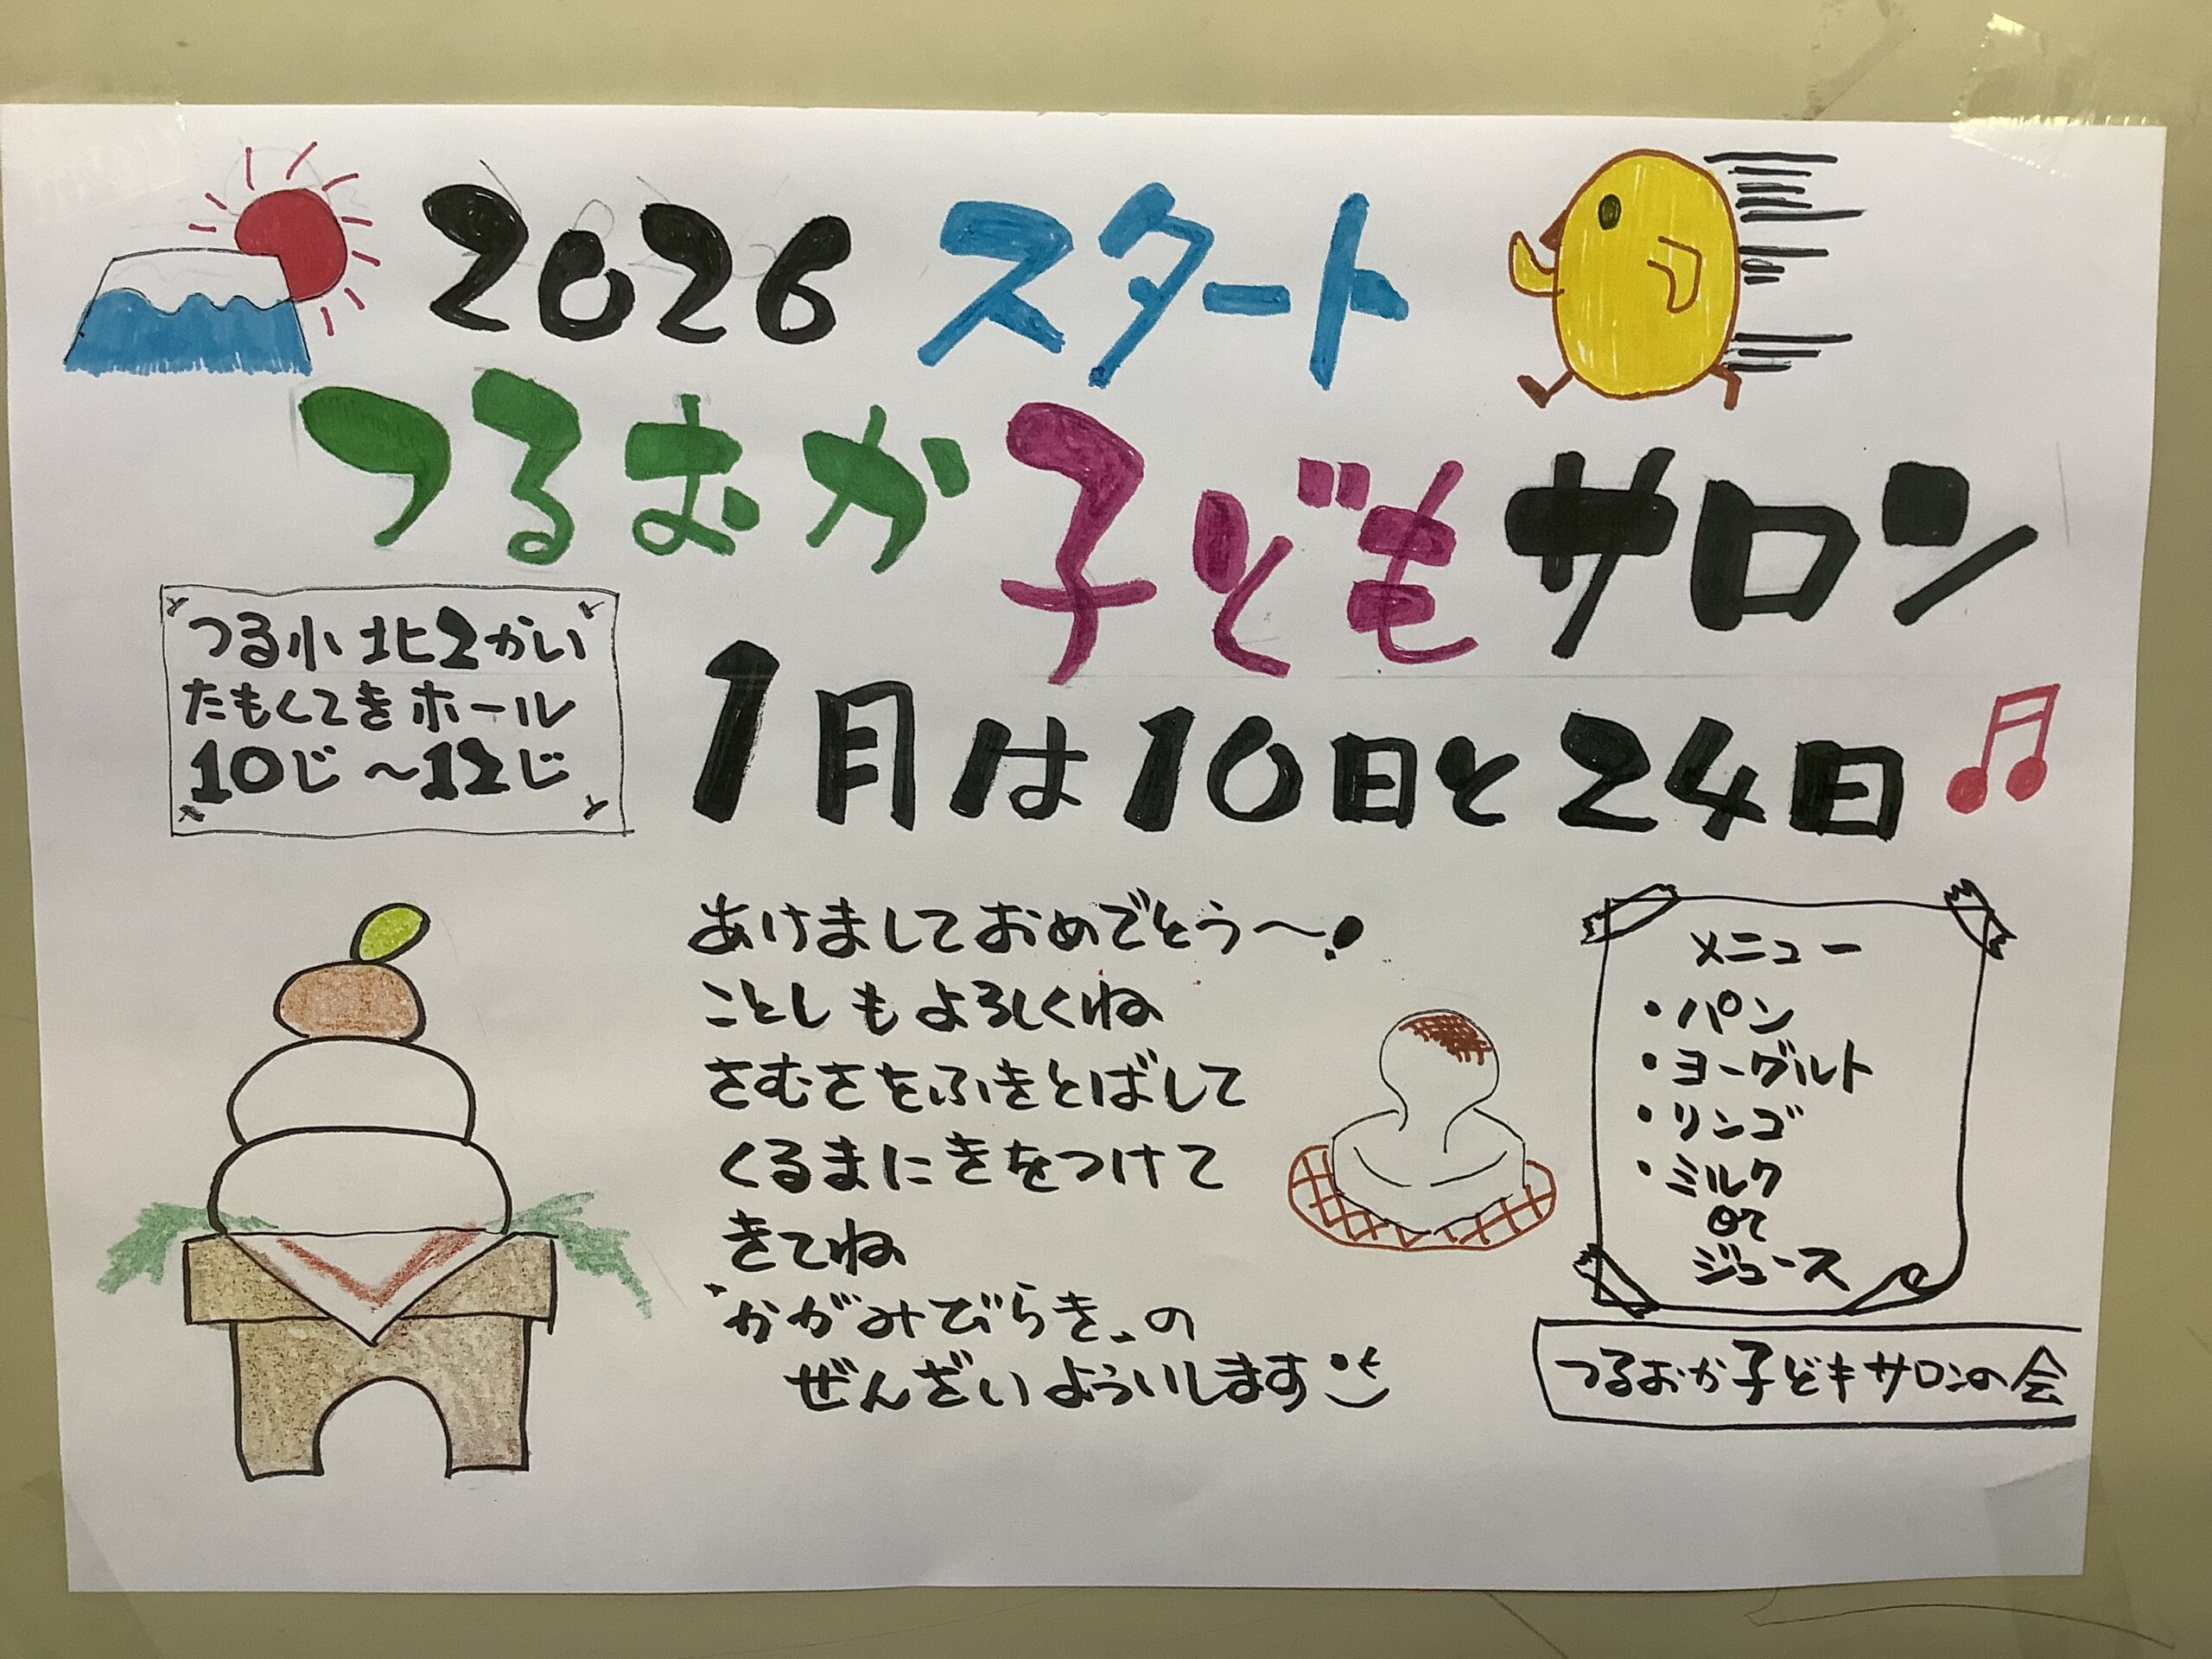 2026 スタート
つるおか子どもサロン
つる小 北2かい
たもくてきホール
10じ～12じ
1月は10日と24日
あけましておめでとう～!
ことしもよろしくね
さむさをふきとばして
くるまにきをつけて
きてね
"かがみびらき"の
ぜんざいよういします
メニュー
・パン
・ヨーグルト
・リンゴ
・ミルク
or
ジュース
つるおか子どもサロンの会